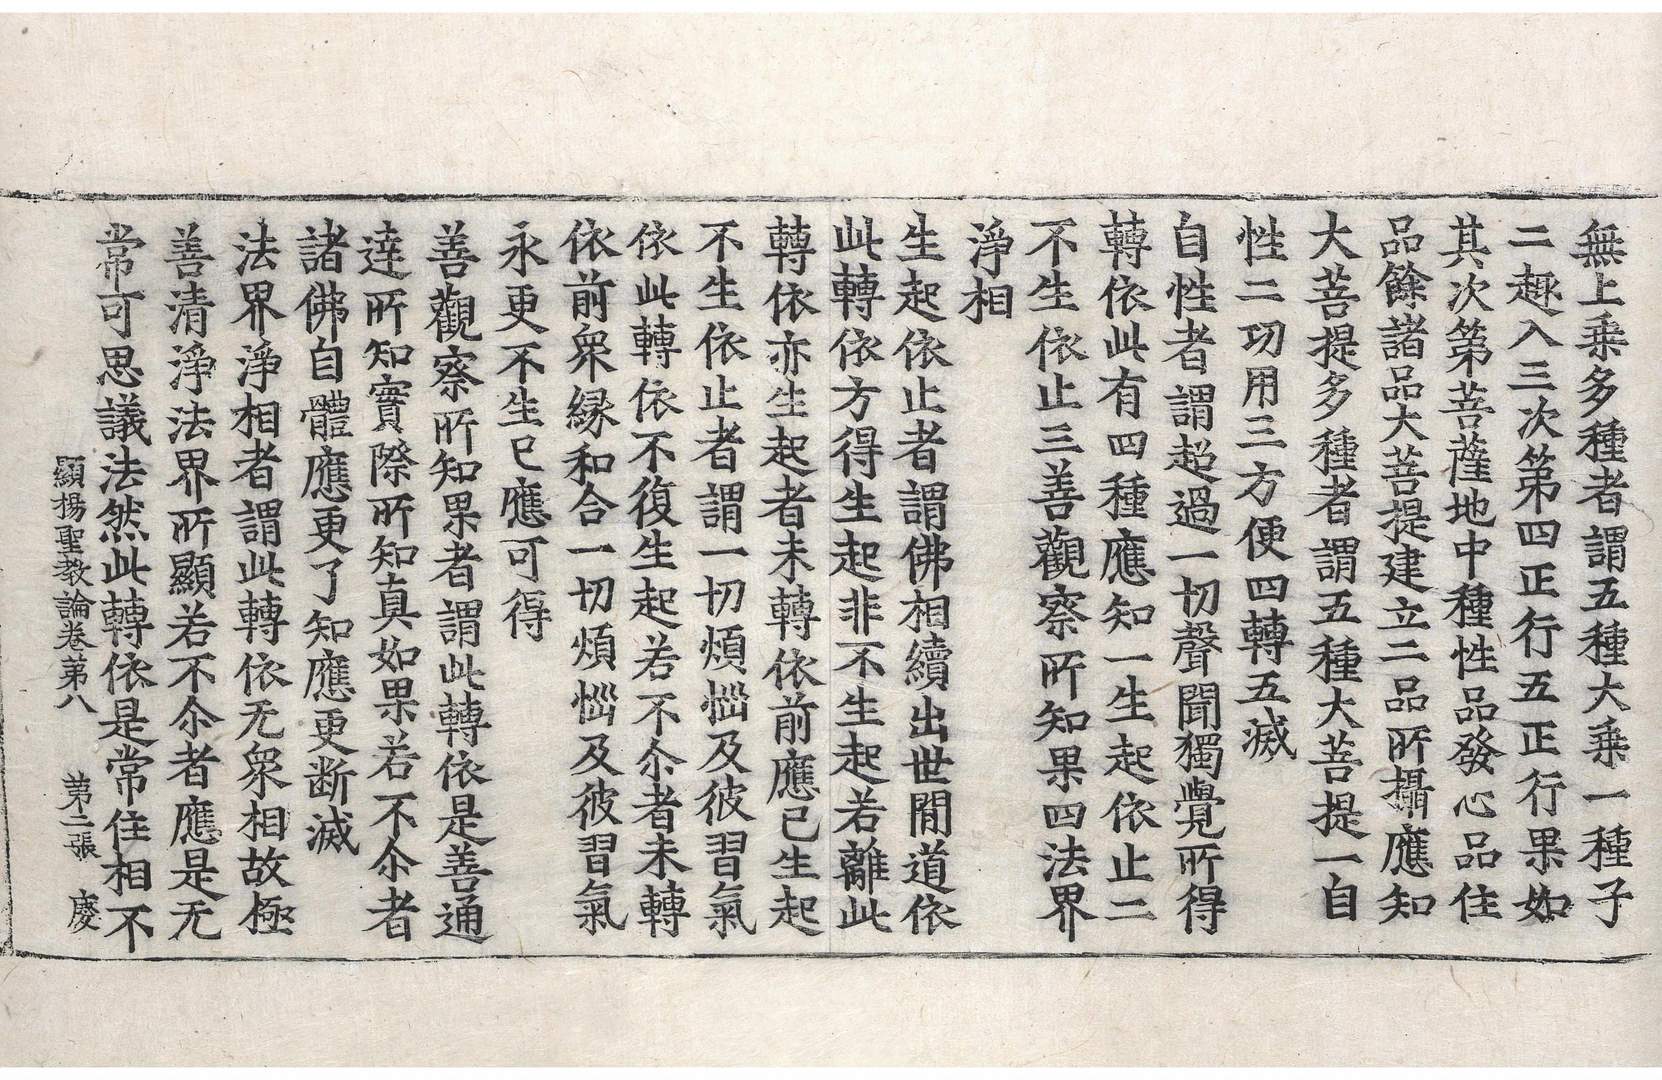 無上乗多種者謂五種大乗一種子
二趣入三次第四正行五正行果如
其次第菩薩地中種性品發心品住
品餘諸品大菩提建立二品所攝應知
大菩提多種者謂五種大菩提一自
性二功用三方便四轉五滅
自性者謂超過一切聲聞獨覺所得
轉依此有四種應知一生起依止二
不生依止三善觀察所知果四法界
淨相
生起依止者謂佛相續出世間道依
此轉依方得生起非不生起若離此
轉依亦生起者未轉依前應已生起
不生依止者謂一切煩惱及彼習氣
依此轉依不復生起若不尒者未轉
依前衆縁和合一切煩惱及彼習氣
永更不生已應可得
善觀察所知果者謂此轉依是善通
達所知實際所知真如果若不尒者
諸佛自體應更了知應更断滅
法界淨相者謂此轉依无衆相故極
善清淨法界所顯若不尒者應是无
常可思議法然此轉依是常住相不
顯揚聖教論卷第八 第二張 慶